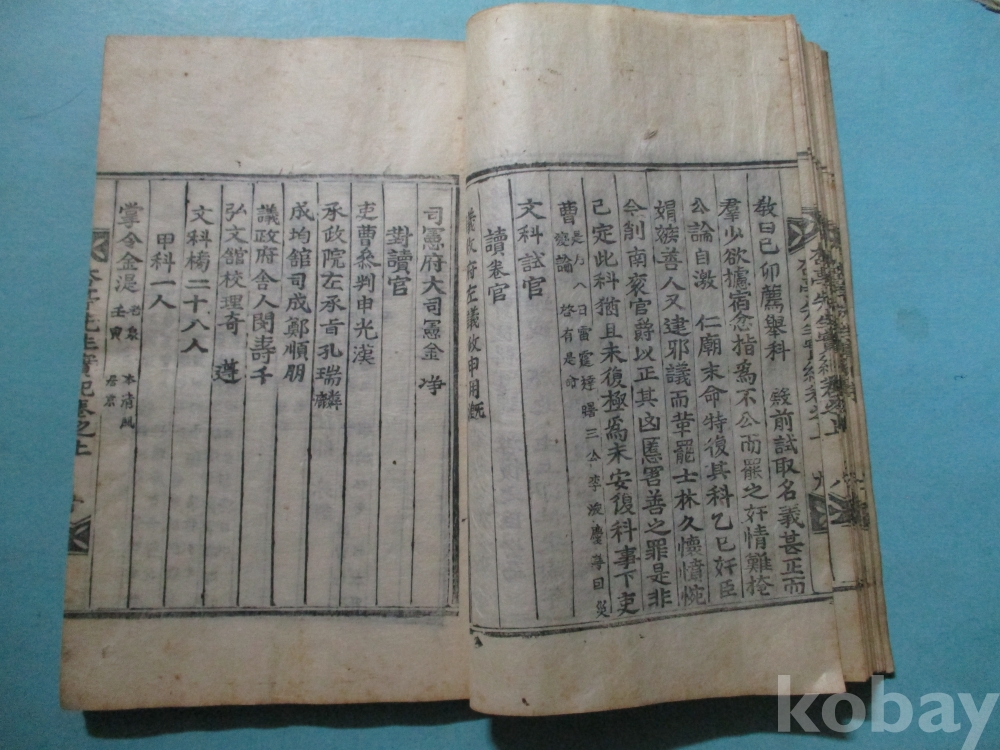 敎曰己卯薦擧科 殿前試取名義甚正而
羣少欲攄宿忿指爲不公而罷之奸情難掩
公論自激 仁廟末命特復其科乙巳奸臣
媢嫉善人又建邪議而鞏罷士林久懷憤惋
今削南袞官爵以正其凶慝害善之罪是非
已定此科猶且未復極爲未安復科事下吏
曹
文科試官
讀卷官
議政府左議政申用漑
司憲府大司憲金 净
對讀官
吏曹叅判申光漢
承政院左承旨孔瑞麟
成均館司成鄭順朋
議政府舍人閔壽千
弘文館校理奇 遵
文科榜二十八人
甲科一人
掌令金湜 老泉 壬寅 本淸風 居京
先生實紀卷之上
kobay